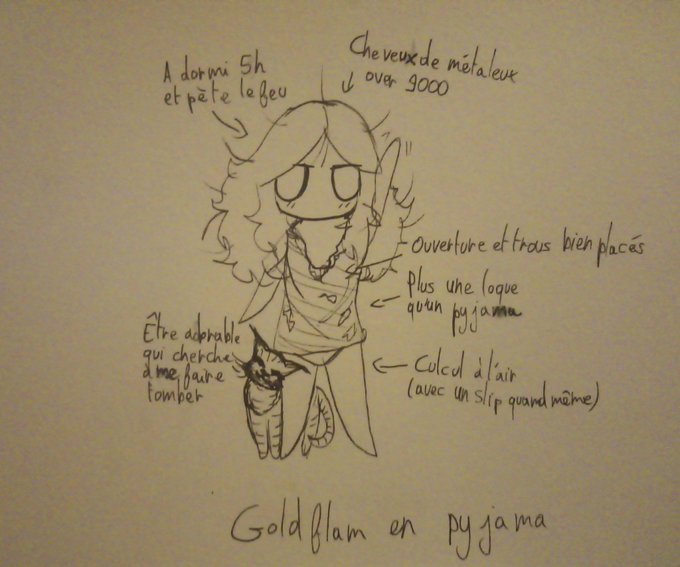 A dormi 5h
et pète le feu
Cheveux de métaleux
over 9000
Ouverture et trous bien placés
Plus une loque
qu'un pyjama
Être adorable
qui cherche
à me faire
tomber
Cucul à l'air
(avec un slip quand même)
Goldflam en pyjama